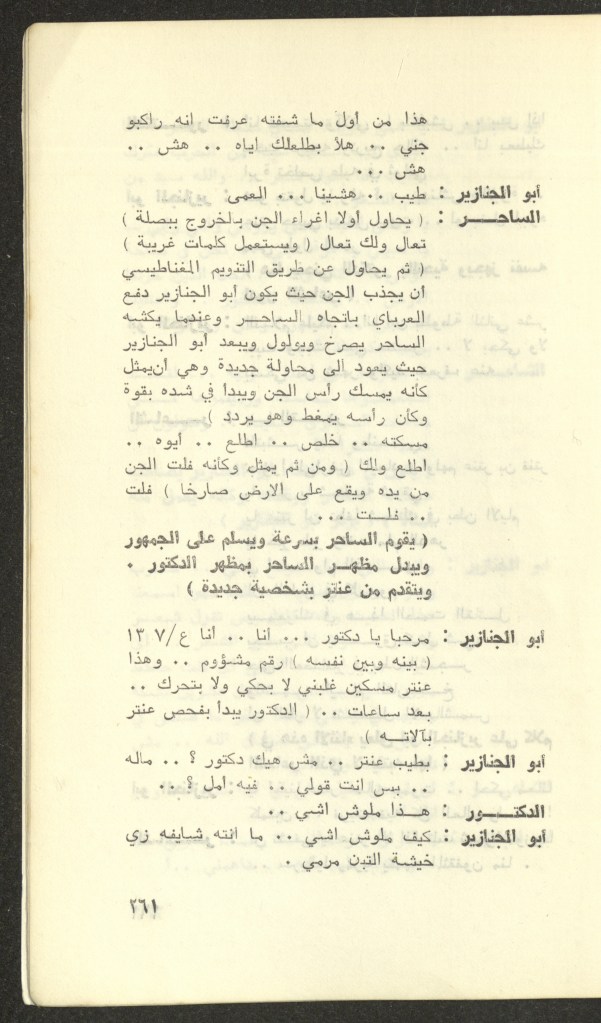 هذا من اول ما شفته عرفت انه راكبو
جني .. هلأ بطلعلك اياه .. هش ..
هش ...
أبو الجنازير : طيب .. هشينا ... العمى
الساحـــر : ( يحاول أولا اغراء الجن بالخروج ببصلة )
تعال ولك تعال ( ويستعمل كلمات غريبة )
( ثم يحاول عن طريق التنويم المغناطيسي
أن يجذب الجن حيث يكون أبو الجنازير دفع
العرباي باتجاه الساحـر وعندما يكشه
الساحر يصرخ ويولول ويبعد أبو الجنازير
حيث يعود الى محاولة جديدة وهي أن‌يمثل
كأنه يمسك رأس الجن ويبدأ في شده بقوة
وكأن رأسه يمغط وهو يردد )
مسكته .. خلص .. اطلع .. أيوه ..
اطلع ولك ( ومن ثم يمثل وكأنه فلت الجن
من يده ويقع على الارض صارخا ) فلت
.. فلــت ...
( يقوم الساحر بسرعة ويسلم على الجمهور
ويبدل مظهـر الساحر بمظهر الدكتور .
ويتقدم من عنتر بشخصية جديدة )
أبو الجنازير : مرحبا يا دكتور ... أنا .. أنا ع/٧ ١٣
( بينه وبين نفسه ) رقم مشؤوم .. وهذا
عنتر مسكين غلبني لا بحكي ولا بتحرك ..
بعد ساعات .. ( الدكتور يبدأ بفحص عنتر
بآلاتــه )
أبو الجنازير : بطيب عنتر .. مش هيك دكتور ؟ .. ماله
.. بس انت قولي .. فيه أمل ؟ ..
الدكتـــور : هــذا ملوش اشي ..
أبو الجنازير : كيف ملوش اشي .. ما انته شايفه زي
خيشة التبن مرمي .
٢٦١